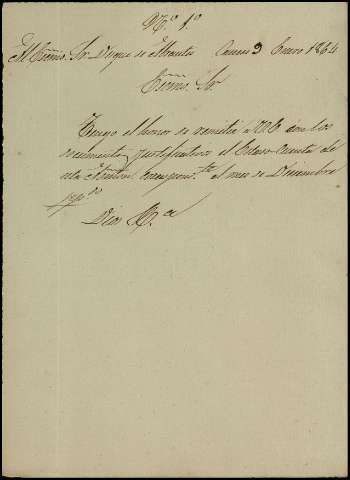 N.º 1º
Al Exmo. Sr. Duque de Abrantes Enero 1864
Exmo. Sr.
Tengo el honor de remitir a V.E. con los
documentos justificativos el Estado Cuenta de
esta correspon.te al mes de Diciembre
pp.do
Dios &.a